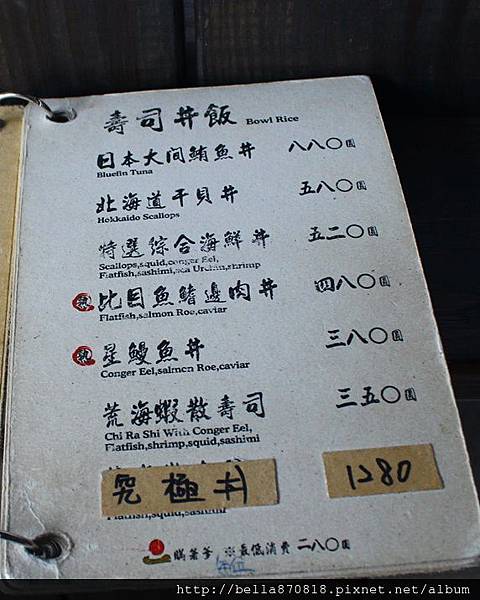 壽司丼飯 Bowl Rice
日本大间鮪魚丼 八八〇圓
Bluefin Tuna
北海道干貝丼 五八〇圓
Hokkaido Scallops
特選綜合海鮮丼 五二〇圓
Scallops,squid,conger Eel,
Flatfish,sashimi,sea Urchin,shrimp
熱 比目魚鰭邊肉丼 四八〇圓
Flatfish,salmon Roe,caviar
熱 星鰻魚丼 三八〇圓
Conger Eel,salmon Roe,caviar
荒海蝦散壽司 三五〇圓
Chi Ra Shi With Conger Eel,
Flatfish,shrimp,squid,sashimi
究極丼 1280
Flatfish,squid,sashimi
※最低消費 二八〇圓
http://bella870818.pixnet.net/album